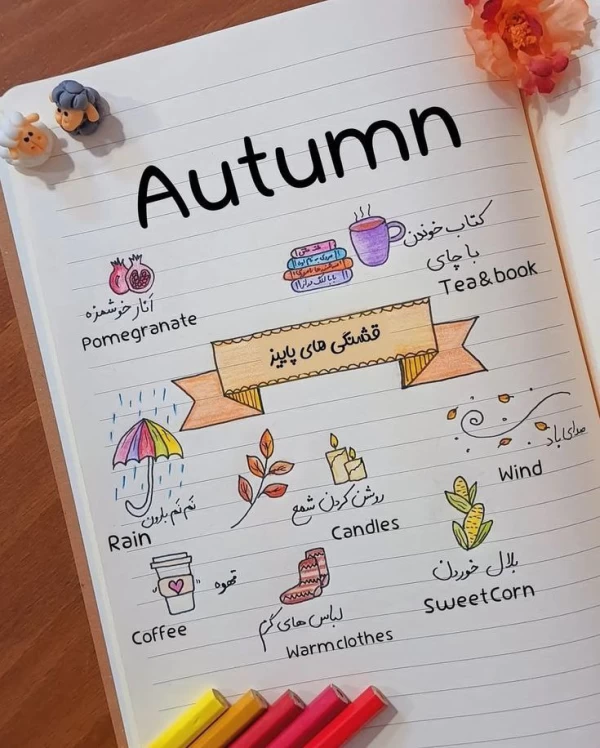 Autumn
کتاب خوندن
با چای
Tea&book
انار خوشمزه
Pomegranate
بابا لنگ دراز
قشنگی های پاییز
صدای باد
Wind
نم نم بارون
Rain
روشن کردن شمع
Candles
بلال خوردن
SweetCorn
قهوه
Coffee
لباس های گرم
Warmclothes